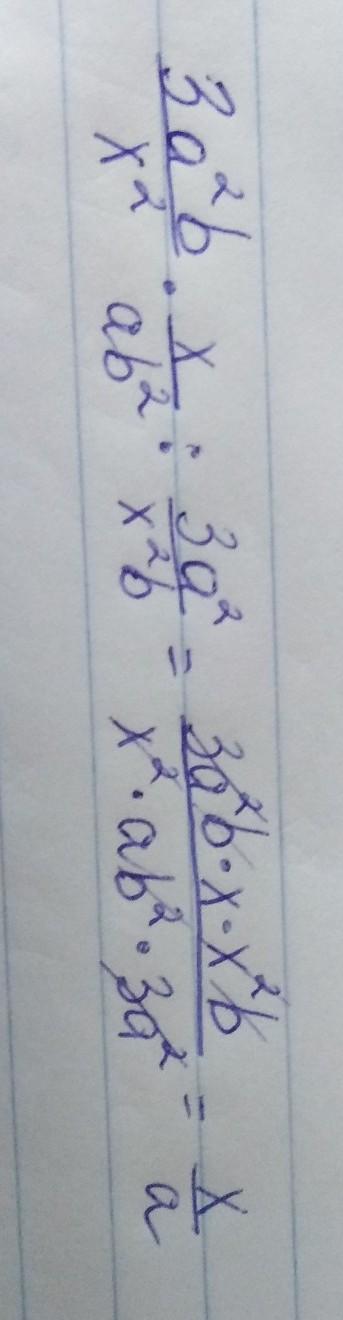 \frac{3a^2b}{x^2} \cdot \frac{x}{ab^2} : \frac{3a^2}{x^2b} = \frac{3a^2b \cdot x \cdot x^2b}{x^2 \cdot ab^2 \cdot 3a^2} = \frac{x}{a}